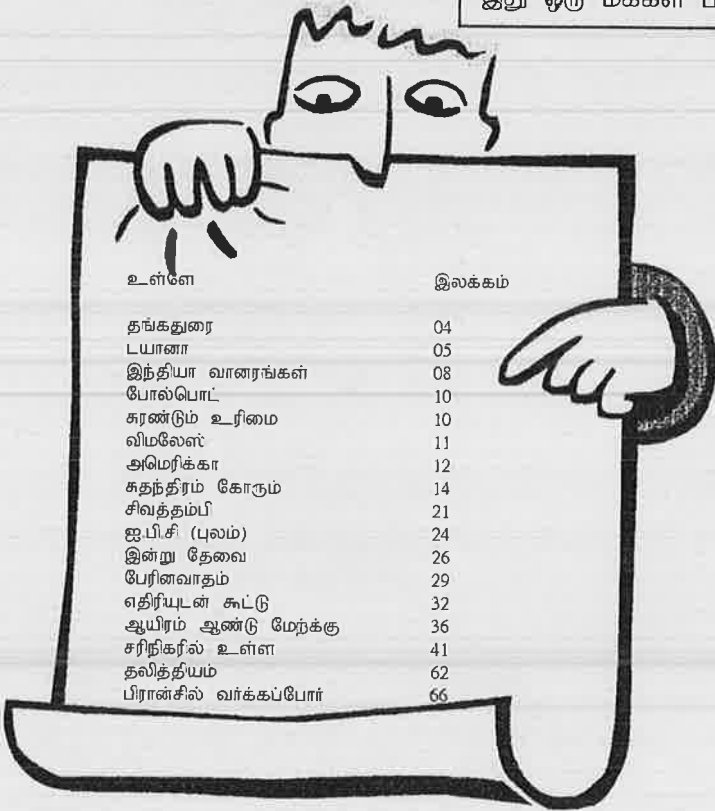 இது ஒரு மக்கள்
உள்ளே இலக்கம்
தங்கதுரை 04
டயானா 05
இந்தியா வானரங்கள் 08
போல்பொட் 10
சுரண்டும் உரிமை 10
விமலேஸ் 11
அமெரிக்கா 12
சுதந்திரம் கோரும் 14
சிவத்தம்பி 21
ஐ.பி.சி (புலம்) 24
இன்று தேவை 26
பேரினவாதம் 29
எதிரியுடன் கூட்டு 32
ஆயிரம் ஆண்டு மேற்க்கு 36
சரிநிகரில் உள்ள 41
தலித்தியம் 62
பிரான்சில் வர்க்கப்போர் 66